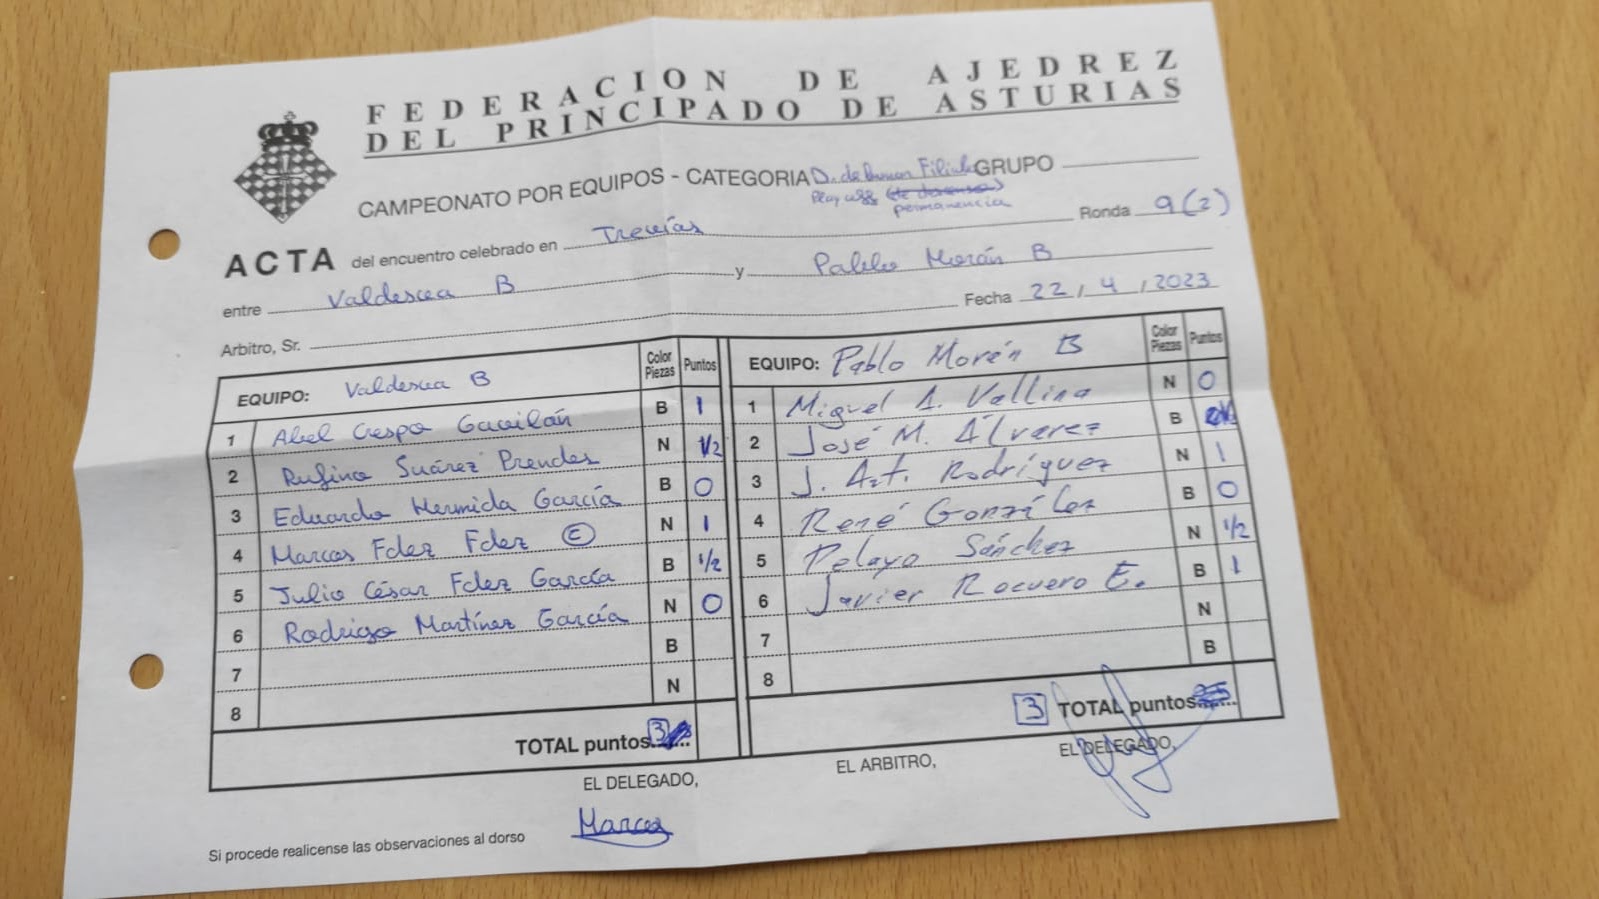 FEDERACION DE AJEDREZ
DEL PRINCIPADO DE ASTURIAS
CAMPEONATO POR EQUIPOS - CATEGORIA D. de Filiales GRUPO
Play off
permanencia
ACTA del encuentro celebrado en Trevías Ronda 9(2)
entre Valdesva B y Pablo Morán B
Arbitro, Sr. Fecha 22 / 4 / 2023
EQUIPO: Valdesva B Color Piezas Puntos EQUIPO: Pablo Morán B Color Piezas Puntos
1 Abel Crespo Gavilán B 1 1 Miguel A. Vallina N 0
2 Rufino Suárez Prendes N 1/2 2 José M. Álvarez B
3 Eduardo Hermida García B 0 3 J. Ant. Rodríguez N 1
4 Marcos Fdez Fdez C N 1 4 René González B 0
5 Julio César Fdez García B 1/2 5 Pelayo Sánchez N 1/2
6 Rodrigo Martínez García N 0 6 Javier Rocuero E. B 1
7 B 7 N
8 N 8 B
TOTAL puntos 3 3 TOTAL puntos
EL DELEGADO, EL ARBITRO, EL DELEGADO,
Marcos
Si procede realicense las observaciones al dorso